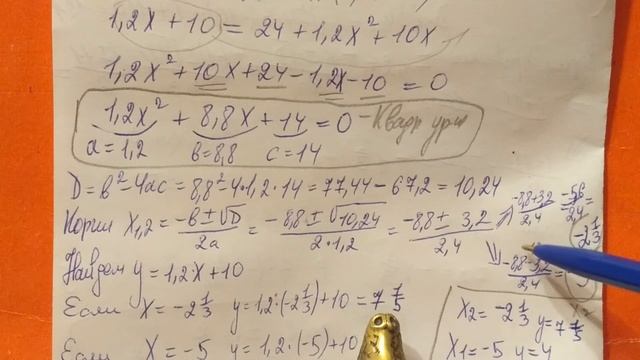 1,2x + 10 = 24 + 1,2x² + 10x
1,2x² + 10x + 24 - 1,2x - 10 = 0
1,2x² + 8,8x + 14 = 0 - Квадр урав
a = 1,2 в = 8,8 c = 14
D = в² - 4ac = 8,8² - 4·1,2·14 = 77,44 - 67,2 = 10,24
Корни x1,2 = -в ± √D / 2a = -8,8 ± √10,24 / 2·1,2 = -8,8 ± 3,2 / 2,4
-8,8+3,2 / 2,4 = -5,6 / 2,4 =
-2 1/3
-8,8-3,2 / 2,4 =
Найдем y = 1,2·x + 10
Если x = -2 1/3 y = 1,2·(-2 1/3) + 10 = 7 1/5
Если x = -5 y = 1,2·(-5) + 10
x2 = -2 1/3 y = 7 1/5
x1 = -5 y = 4